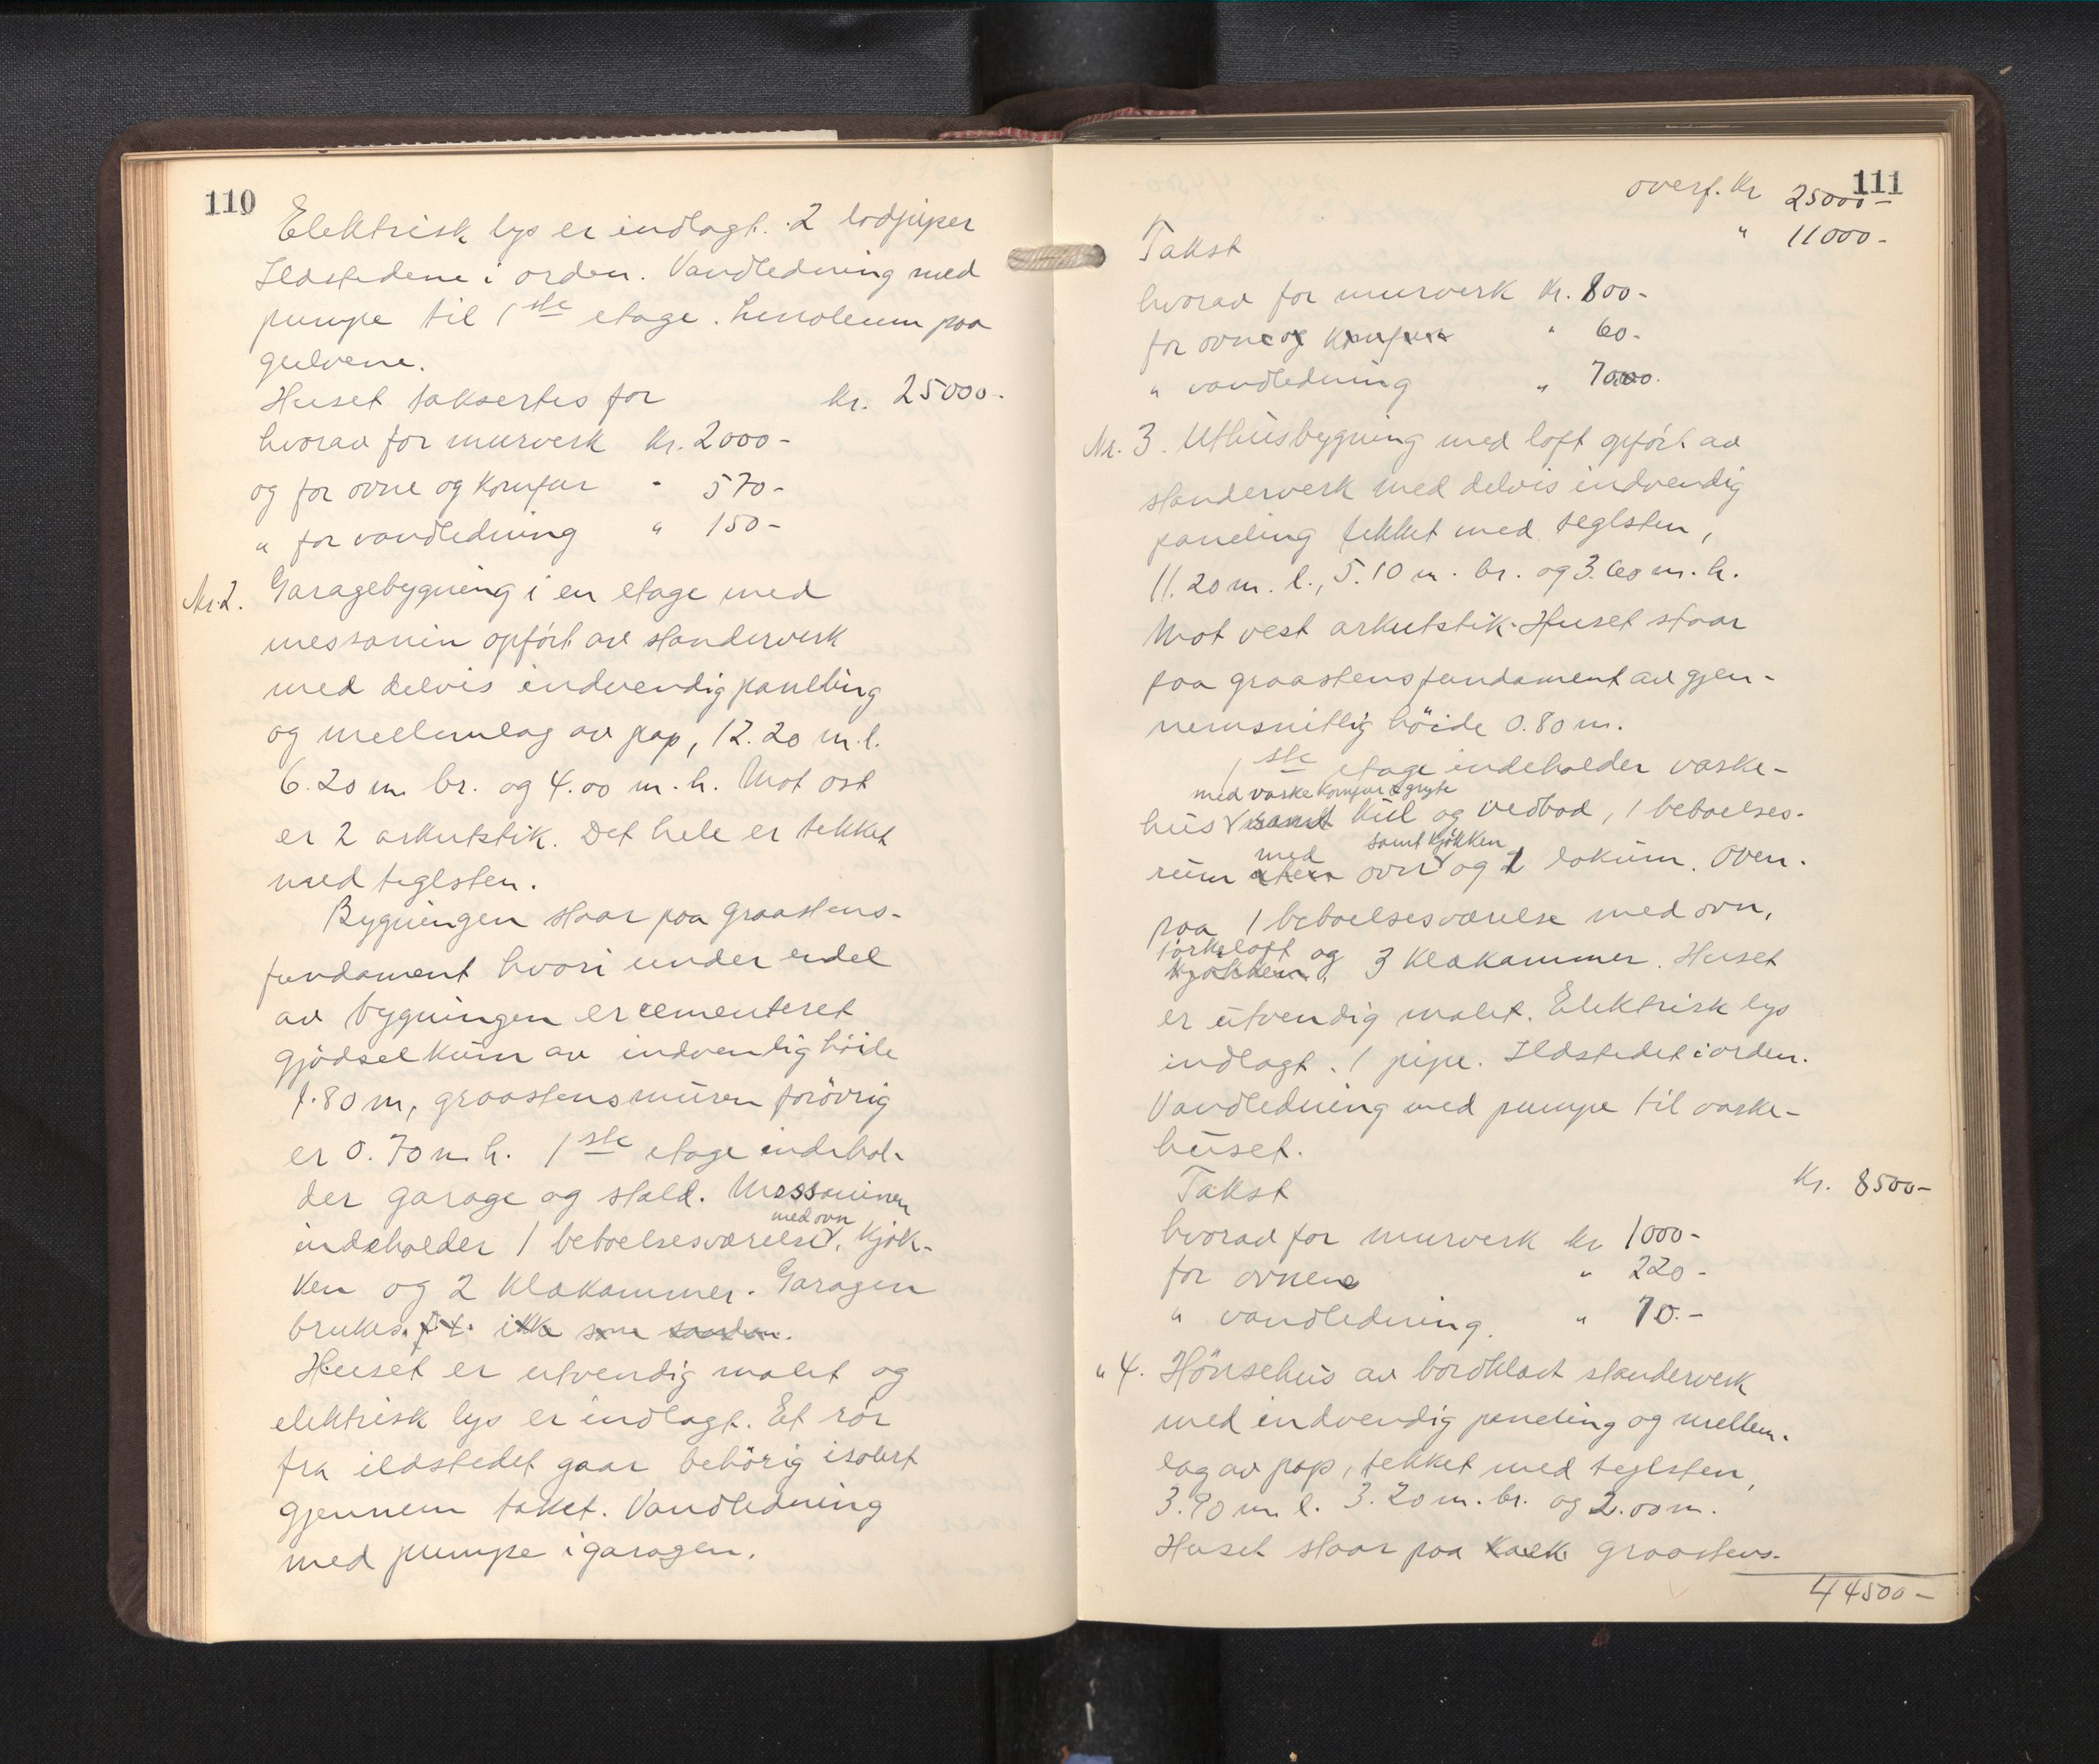 110
Elektrisk lys er indlagt. 2 lodpiper
Ildstedene i orden. Vandledning med
pumpe til 1ste etage. Linoleum paa
gulvene.
Huset takseres for kr. 25000.
hvorav for murverk kr. 2000-
og for ovne og komfur " 570-
" for vandledning " 150-
Nr. 2. Garagebygning i en etage med
messanin opført av standerverk
med delvis indvendig paneling
og mellemlag av pap, 12.20 m. l.
6.20 m. br. og 4.00 m. h. Mot ost
er 2 arkutstik. Det hele er tekket
med teglsten.
Bygningen staar paa graastens-
fundament hvori under endel
av bygningen er cementeret
gjødselkum av indvendig høide
1.80 m, graastensmuren forøvrig
er 0.70 m. h. 1ste etage indehol-
der garage og stald. Messaninen
med ovn
indeholder 1 beboelsesværelse, kjøk-
ken og 2 klækammer. Garagen
brukes f.t. ikke som saadan.
Huset er utvendig malt og
elektrisk lys er indlagt. Et rør
fra ildstedet gaar behørig isolert
gjennem taket. Vandledning
med pumpe i garagen.
111
overf. Kr 25000-
Takst " 11000-
hvorav for murverk Kr. 800-
for ovne og komfur " 60-
" vandledning " 70.
Nr. 3. Uthusbygning med loft opført av
standerverk med delvis indvendig
paneling tekket med teglsten,
11.20 m. l., 5.10 m. br. og 3.60 m. h.
Mot vest arkutstik. Huset staar
paa graastensfundament av gjen-
nemsnitlig høide 0.80 m.
1ste etage indeholder vaske-
med vaske komfur & gryte
hus samt kul og vedbod, 1 beboelses-
med samt kjøkken
rum uten ovn og 1 lokum. Oven-
paa 1 beboelsesværelse med ovn,
tørkeloft og
kjøkken, 3 klækammer. Huset
er utvendig malt. Elektrisk lys
indlagt. 1 pipe. Ildstedet i orden.
Vandledning med pumpe til vaske-
huset.
Takst Kr. 8500-
hvorav for murverk kr 1000-
for ovnene " 220-
" vandledning. " 70.-
" 4. Hønsehus av bordklædt standerverk
med indvendig paneling og mellem-
lag av pap, tekket med teglsten,
3.90 m l. 3.20 m. br. og 2.00 m.
Huset staar paa graastens-
44500-